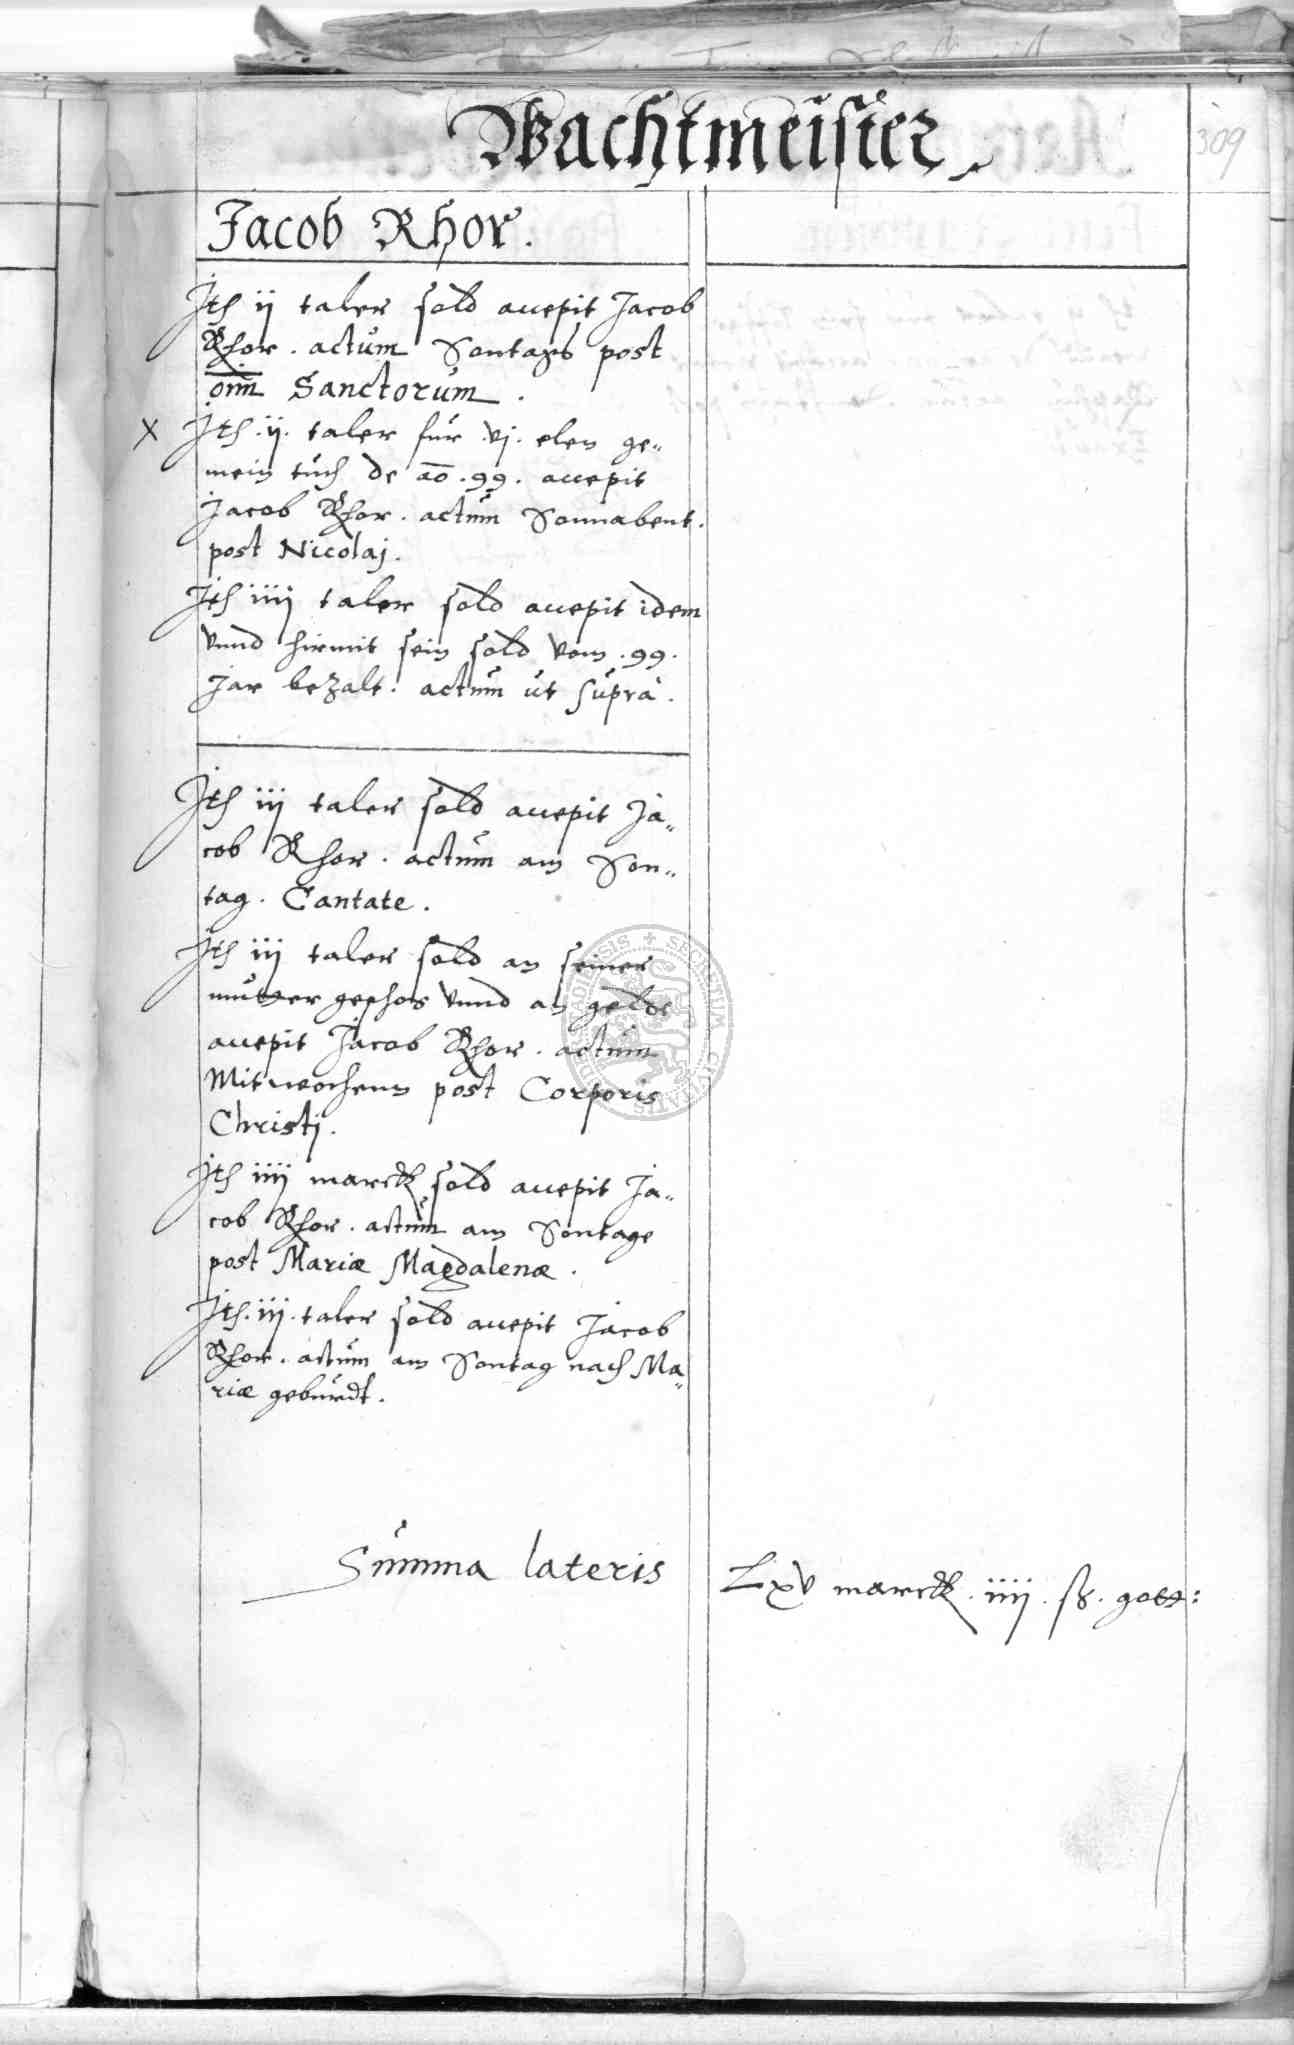 Wachtmeister
309
Jacob Rhor.
Jts ij taler sold accepit Jacob
Rhor. actum Sontags post
om̄ Sanctorum.
x Jts .ij. taler für .vj. elen ge„
mein tuch de ao .99. accepit
Jacob Rhor. actum Sonnabent.
post Nicolaj.
Jts iiij taler sold accepit idem
vnnd hirmit sein sold vom .99.
Jar bezalt. actum ut supra.
Jts iij taler sold accepit Ja„
cob Rhor. actum am Son„
tag. Cantate.
Jts iij taler sold an seiner
mutter geschos vnnd an gelde
accepit Jacob Rhor. actum
Mitwochenn post Corporis
Christj.
Jts iiij marck sold accepit Ja„
cob Rhor. actum am Sontage
post Mariæ Magdalenæ.
Jts. iij. taler sold accepit Jacob
Rhor. actum am Sontag nach Ma„
riæ geburdt.
Summa lateris Lxv marck. iiij. sz. gott:
SECRETUM CIVITATIS